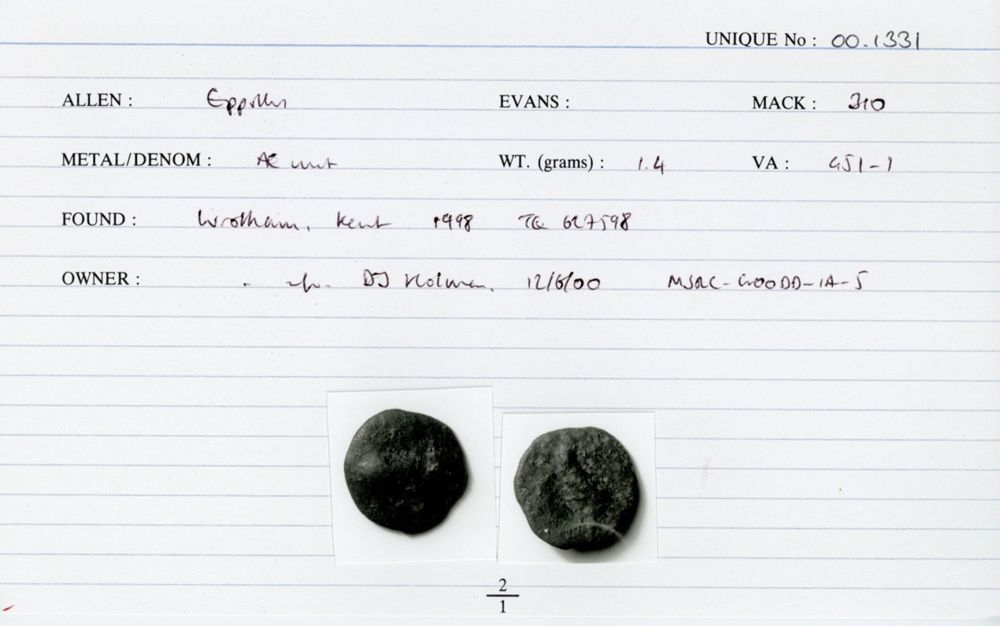 UNIQUE No : 00.1331
ALLEN : Eppillus EVANS : MACK : 310
METAL/DENOM : Æ unit WT. (grams) : 1.4 VA : 451-1
FOUND : Wrotham, Kent 1998 TQ 627598
OWNER : DJ Holman, 12/6/00 MSRC-GOODD-IA-5
2
1